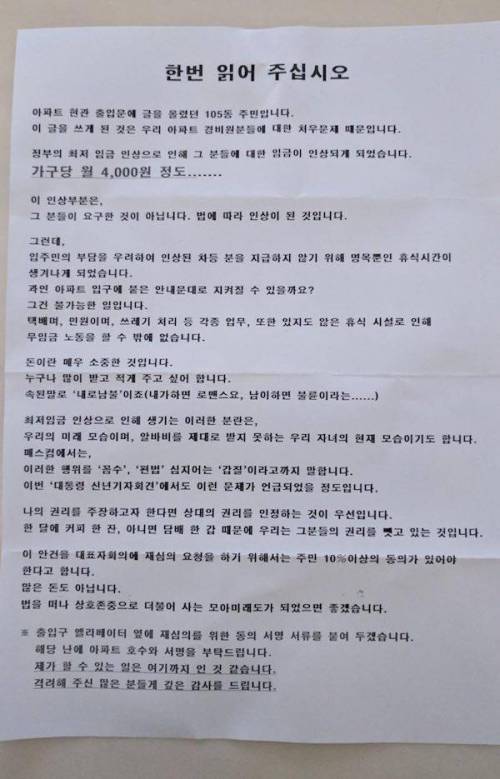 한번 읽어 주십시오
아파트 현관 출입문에 글을 올렸던 105동 주민입니다.
이 글을 쓰게 된 것은 우리 아파트 경비원분들에 대한 처우문제 때문입니다.
정부의 최저 임금 인상으로 인해 그 분들에 대한 임금이 인상되게 되었습니다.
가구당 월 4,000원 정도.......
이 인상부분은,
그 분들이 요구한 것이 아닙니다. 법에 따라 인상이 된 것입니다.
그런데,
입주민의 부담을 우려하여 인상된 차등 분을 지급하지 않기 위해 명목뿐인 휴식시간이
생겨나게 되었습니다.
과연 아파트 입구에 붙은 안내문대로 지켜질 수 있을까요?
그건 불가능한 일입니다.
택배며, 민원이며, 쓰레기 처리 등 각종 업무, 또한 있지도 않은 휴식 시설로 인해
무임금 노동을 할 수 밖에 없습니다.
돈이란 매우 소중한 것입니다.
누구나 많이 받고 적게 주고 싶어 합니다.
속된말로 '내로남불'이죠(내가하면 로맨스요, 남이하면 불륜이라는......)
최저임금 인상으로 인해 생기는 이러한 분란은,
우리의 미래 모습이며, 알바비를 제대로 받지 못하는 우리 자녀의 현재 모습이기도 합니다.
매스컴에서는,
이러한 행위를 '꼼수', '편법' 심지어는 '갑질'이라고까지 말합니다.
이번 '대통령 신년기자회견'에서도 이런 문제가 언급되었을 정도입니다.
나의 권리를 주장하고자 한다면 상대의 권리를 인정하는 것이 우선입니다.
한 달에 커피 한 잔, 아니면 담배 한 갑 때문에 우리는 그분들의 권리를 뺏고 있는 것입니다.
이 안건을 대표자회의에 재심의 요청을 하기 위해서는 주민 10%이상의 동의가 있어야
한다고 합니다.
많은 돈도 아닙니다.
법을 떠나 상호존중으로 더불어 사는 모아미래도가 되었으면 좋겠습니다.
※ 출입구 엘리베이터 옆에 재심의를 위한 동의 서명 서류를 붙여 두겠습니다.
해당 난에 아파트 호수와 서명을 부탁드립니다.
제가 할 수 있는 일은 여기까지 인 것 같습니다.
격려해 주신 많은 분들게 깊은 감사를 드립니다.